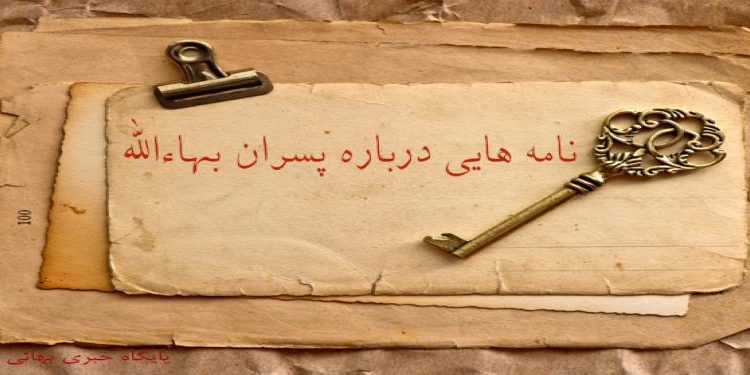 نامه هایی درباره پسران بهاءالله
100
پایگاه خبری بهائی